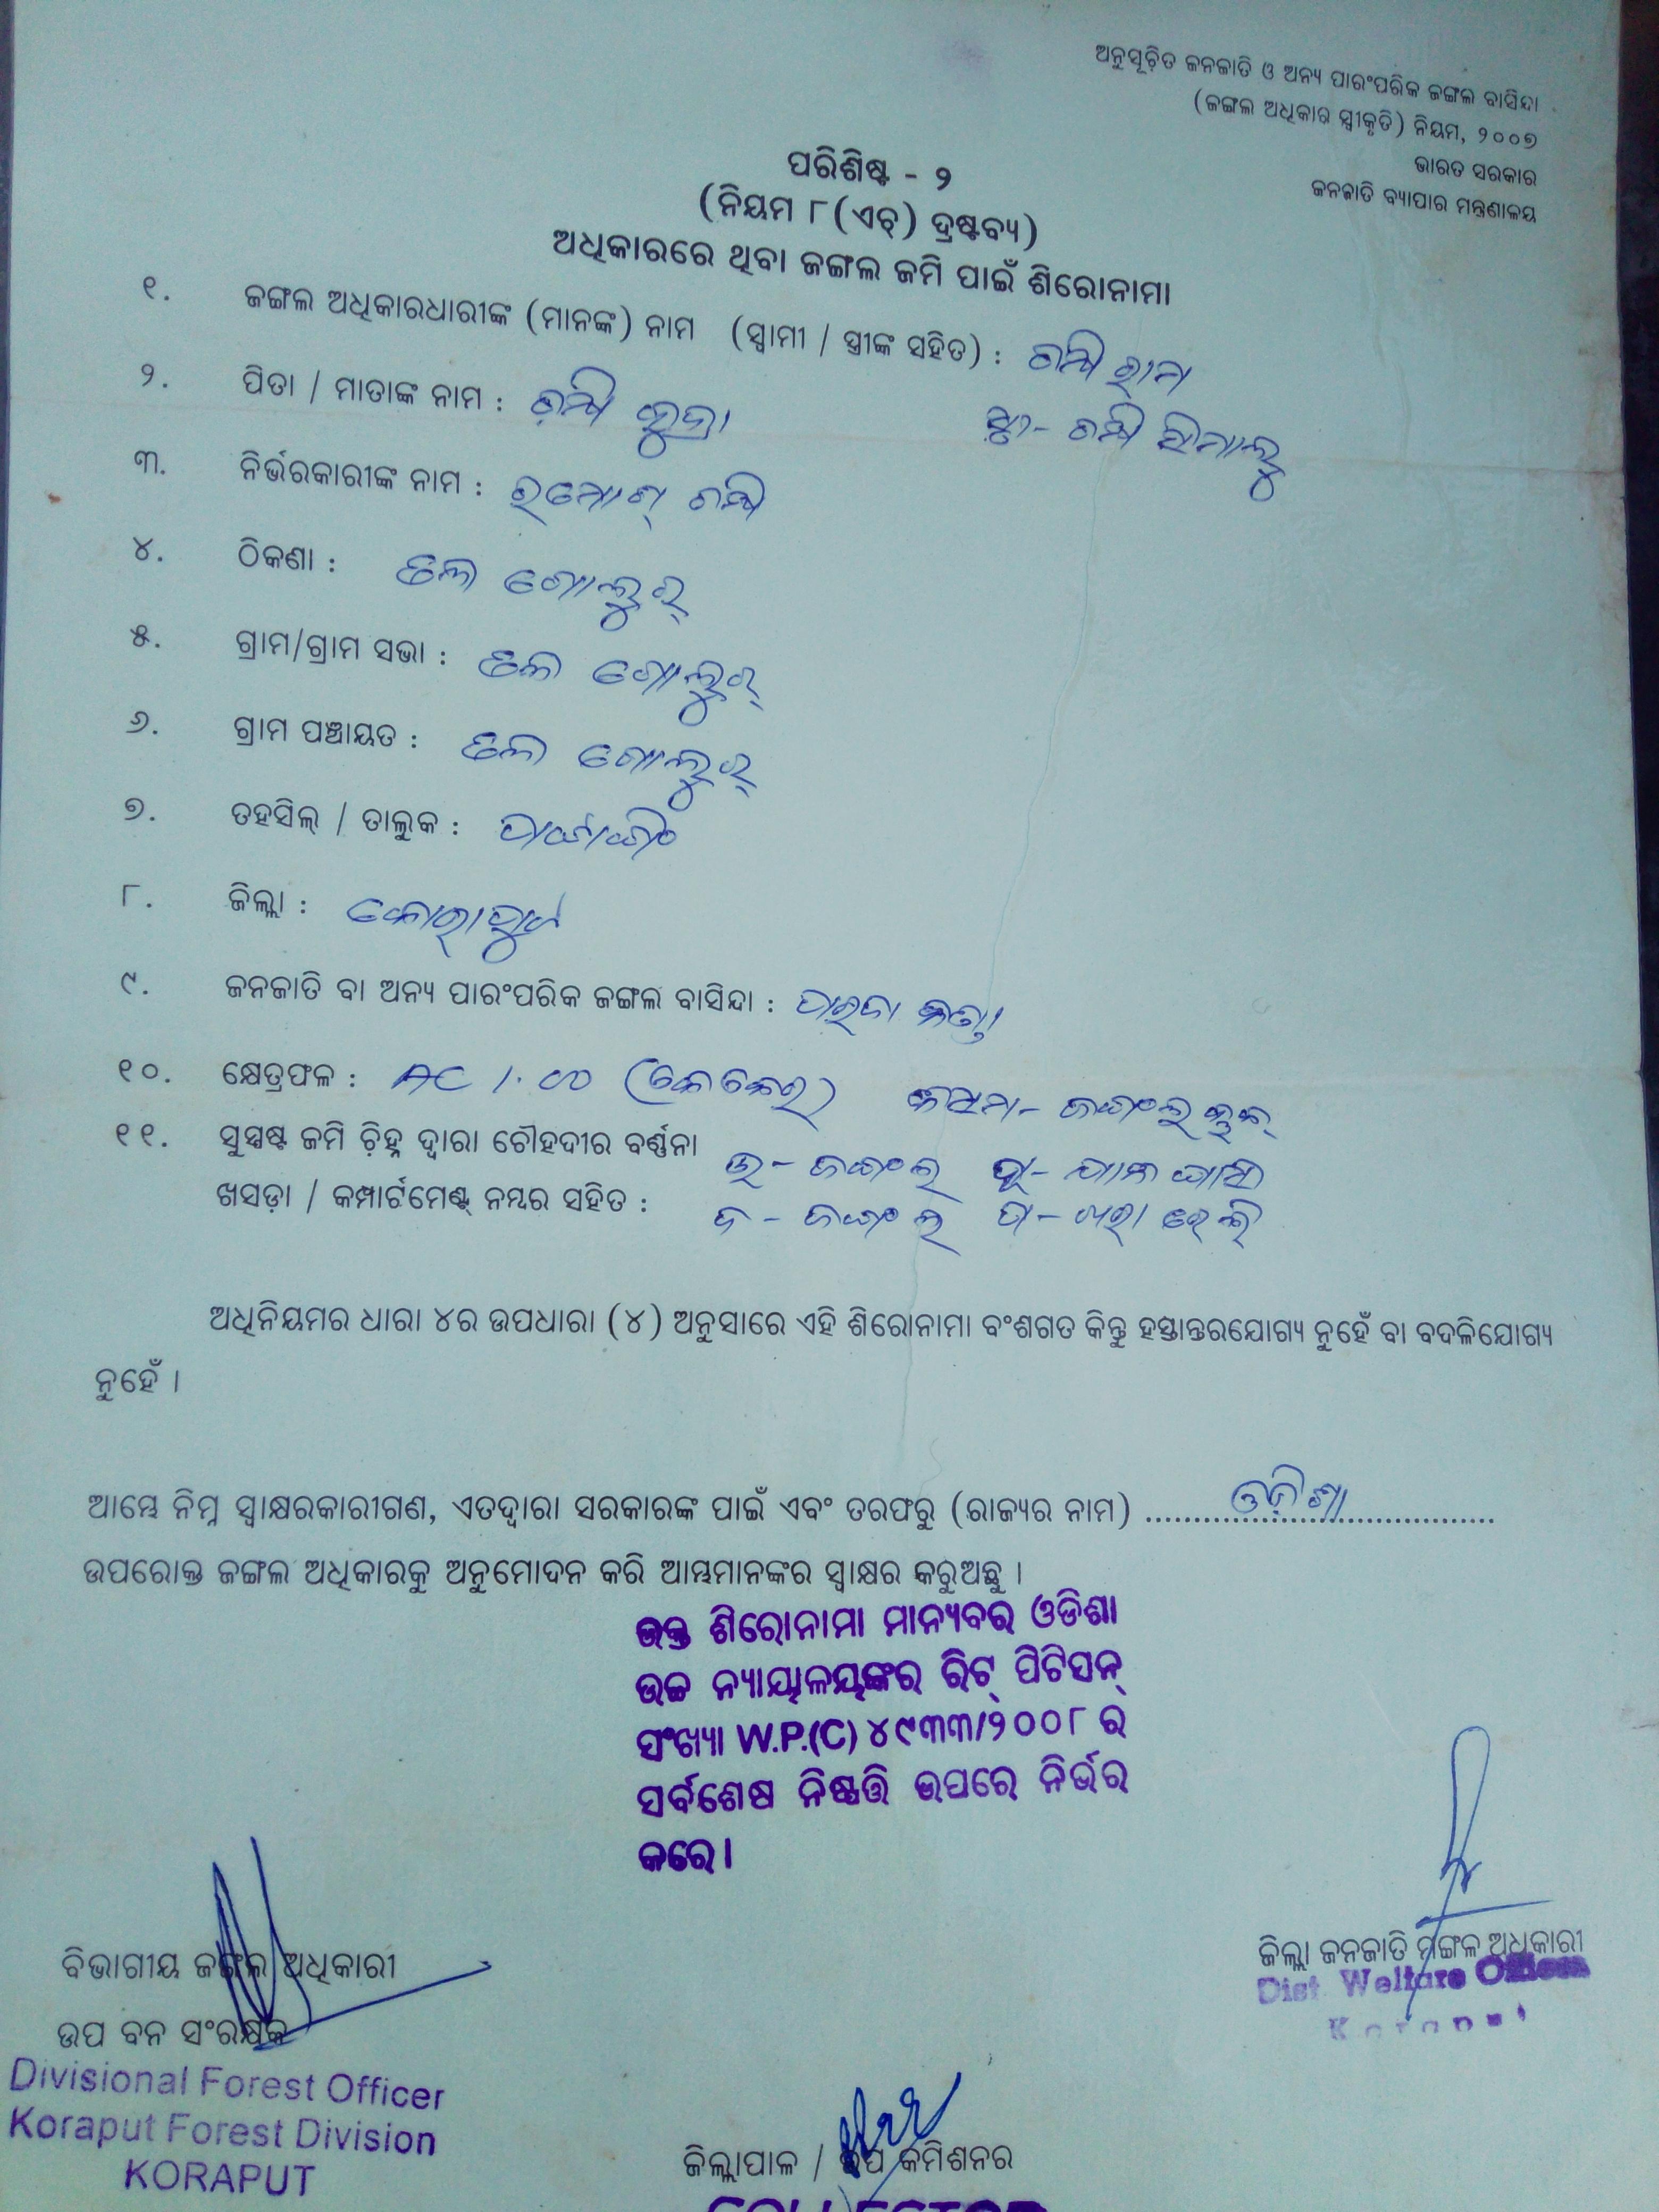 ଅନୁସୂଚିତ ଜନଜାତି ଓ ଅନ୍ୟ ପାରଂପରିକ ଜଙ୍ଗଲ ବାସିନ୍ଦା
(ଜଙ୍ଗଲ ଅଧିକାର ସ୍ୱୀକୃତି) ନିୟମ, ୨୦୦୭
ଭାରତ ସରକାର
ଜନଜାତି ବ୍ୟାପାର ମନ୍ତ୍ରଣାଳୟ
ପରିଶିଷ୍ଟ - ୨
(ନିୟମ ୮(ଏଚ୍) ଦ୍ରଷ୍ଟବ୍ୟ)
ଅଧିକାରରେ ଥିବା ଜଙ୍ଗଲ ଜମି ପାଇଁ ଶିରୋନାମା
୧. ଜଙ୍ଗଲ ଅଧିକାରଧାରୀଙ୍କ (ମାନଙ୍କ) ନାମ (ସ୍ୱାମୀ / ସ୍ତ୍ରୀଙ୍କ ସହିତ) : ରାମ
୨. ପିତା / ମାତାଙ୍କ ନାମ :
୩. ନିର୍ଭରକାରୀଙ୍କ ନାମ :
୪. ଠିକଣା : ତଳ ଗୋଲୁର୍
୫. ଗ୍ରାମ/ଗ୍ରାମ ସଭା : ତଳ ଗୋଲୁର୍
୬. ଗ୍ରାମ ପଞ୍ଚାୟତ : ତଳ ଗୋଲୁର୍
୭. ତହସିଲ୍ / ତାଲୁକ :
୮. ଜିଲ୍ଲା : କୋରାପୁଟ
୯. ଜନଜାତି ବା ଅନ୍ୟ ପାରଂପରିକ ଜଙ୍ଗଲ ବାସିନ୍ଦା :
୧୦. କ୍ଷେତ୍ରଫଳ : AC
୧୧. ସୁସ୍ପଷ୍ଟ ଜମି ଚିହ୍ନ ଦ୍ୱାରା ଚୌହଦୀର ବର୍ଣ୍ଣନା
ଖସଡ଼ା / କମ୍ପାର୍ଟମେଣ୍ଟ୍ ନମ୍ବର ସହିତ :
ଅଧିନିୟମର ଧାରା ୪ର ଉପଧାରା (୪) ଅନୁସାରେ ଏହି ଶିରୋନାମା ବଂଶଗତ କିନ୍ତୁ ହସ୍ତାନ୍ତରଯୋଗ୍ୟ ନୁହେଁ ବା ବଦଳିଯୋଗ୍ୟ
ନୁହେଁ ।
ଆମ୍ଭେ ନିମ୍ନ ସ୍ୱାକ୍ଷରକାରୀଗଣ, ଏତଦ୍ୱାରା ସରକାରଙ୍କ ପାଇଁ ଏବଂ ତରଫରୁ (ରାଜ୍ୟର ନାମ) ଓଡିଶା
ଉପରୋକ୍ତ ଜଙ୍ଗଲ ଅଧିକାରକୁ ଅନୁମୋଦନ କରି ଆମ୍ଭମାନଙ୍କର ସ୍ୱାକ୍ଷର କରୁଅଛୁ ।
ଉକ୍ତ ଶିରୋନାମା ମାନ୍ୟବର ଓଡିଶା
ଉଚ୍ଚ ନ୍ୟାୟାଳୟଙ୍କର ରିଟ୍ ପିଟିସନ୍
ସଂଖ୍ୟା W.P.(C) ୪୯୩୩/୨୦୦୮ ର
ସର୍ବଶେଷ ନିଷ୍ପତ୍ତି ଉପରେ ନିର୍ଭର
କରେ।
ଜିଲ୍ଲା ଜନଜାତି ମଙ୍ଗଳ ଅଧିକାରୀ
Dist. Welfare Officer
Koraput
ବିଭାଗୀୟ ଜଙ୍ଗଲ ଅଧିକାରୀ
ଉପ ବନ ସଂରକ୍ଷକ
Divisional Forest Officer
Koraput Forest Division
KORAPUT
ଜିଲ୍ଲାପାଳ / ଉପ କମିଶନର
COLLECTOR